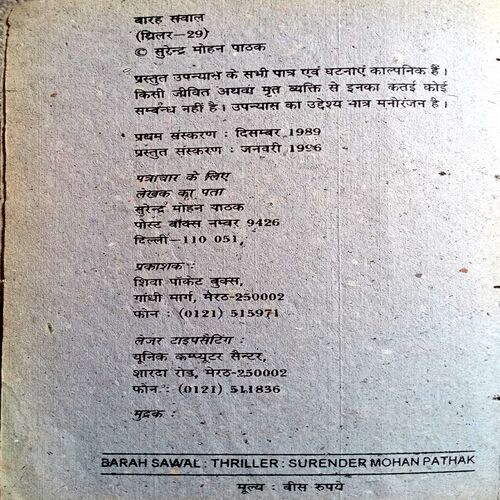 बारह सवाल
(थ्रिलर-29)
© सुरेन्द्र मोहन पाठक
प्रस्तुत उपन्यास के सभी पात्र एवं घटनाएं काल्पनिक हैं।
किसी जीवित अथवा मृत व्यक्ति से इनका कतई कोई
सम्बन्ध नहीं है। उपन्यास का उद्देश्य मात्र मनोरंजन है।
प्रथम संस्करण : दिसम्बर 1989
प्रस्तुत संस्करण : जनवरी 1996
पत्राचार के लिए
लेखक का पता
सुरेन्द्र मोहन पाठक
पोस्ट बॉक्स नम्बर 9426
दिल्ली-110 051,
प्रकाशक :
शिवा पॉकेट बुक्स,
गांधी मार्ग, मेरठ-250002
फोन : (0121) 515971
लेजर टाइपसैटिंग :
यूनिक कम्प्यूटर सैन्टर,
शारदा रोड, मेरठ-250002
फोन : (0121) 511836
मुद्रक :
BARAH SAWAL : THRILLER : SURENDER MOHAN PATHAK
मूल्य : बीस रुपये